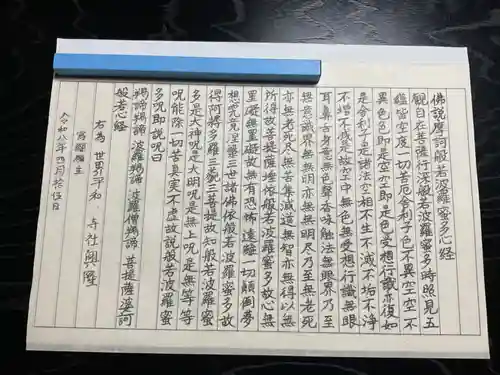 佛説摩訶般若波羅蜜多心経
観自在菩薩行深般若波羅蜜多時照見五
蘊皆空度一切苦厄舎利子色不異空空不
異色色即是空空即是色受想行識亦復如
是舎利子是諸法空相不生不滅不垢不浄
不増不減是故空中無色無受想行識無眼
耳鼻舌身意無色聲香味触法無眼界乃至
無意識界無無明亦無無明尽乃至無老死
亦無老死尽無苦集滅道無智亦無得以無
所得故菩提薩埵依般若波羅蜜多故心無
罣礙無罣礙故無有恐怖遠離一切顛倒夢
想究竟涅槃三世諸佛依般若波羅蜜多故
得阿耨多羅三藐三菩提故知般若波羅蜜
多是大神呪是大明呪是無上呪是無等等
呪能除一切苦真実不虚故説般若波羅蜜
多呪即説呪曰
羯諦羯諦 波羅羯諦 波羅僧羯諦 菩提薩婆訶
般若心経
右為 世界平和、寺社興隆
令和八年四月拾伍日